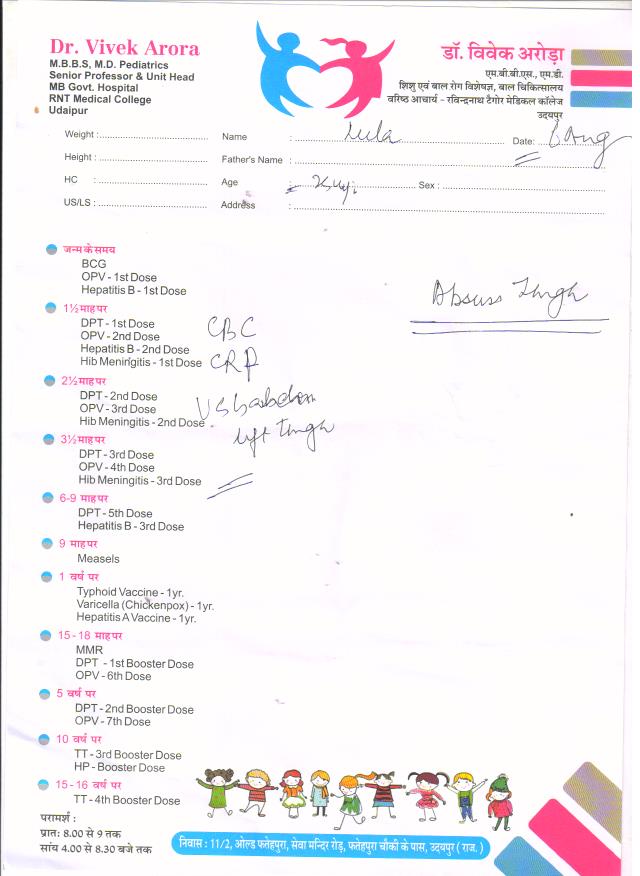 Dr. Vivek Arora
M.B.B.S, M.D. Pediatrics
Senior Professor & Unit Head
MB Govt. Hospital
RNT Medical College
Udaipur
डॉ. विवेक अरोड़ा
एम.बी.बी.एस., एम.डी.
शिशु एवं बाल रोग विशेषज्ञ, बाल चिकित्सालय
वरिष्ठ आचार्य - रविन्द्रनाथ टैगोर मेडिकल कॉलेज
उदयपुर
Weight :
Name :
Date:
Height :
Father's Name :
HC :
Age :
Sex :
US/LS :
Address :
जन्म के समय
BCG
OPV - 1st Dose
Hepatitis B - 1st Dose
1½ माह पर
DPT - 1st Dose
OPV - 2nd Dose
Hepatitis B - 2nd Dose
Hib Meningitis - 1st Dose
CBC
CRP
2½ माह पर
DPT - 2nd Dose
OPV - 3rd Dose
Hib Meningitis - 2nd Dose
3½ माह पर
DPT - 3rd Dose
OPV - 4th Dose
Hib Meningitis - 3rd Dose
6-9 माह पर
DPT - 5th Dose
Hepatitis B - 3rd Dose
9 माह पर
Measels
1 वर्ष पर
Typhoid Vaccine - 1yr.
Varicella (Chickenpox) - 1yr.
Hepatitis A Vaccine - 1yr.
15 - 18 माह पर
MMR
DPT - 1st Booster Dose
OPV - 6th Dose
5 वर्ष पर
DPT - 2nd Booster Dose
OPV - 7th Dose
10 वर्ष पर
TT - 3rd Booster Dose
HP - Booster Dose
15 - 16 वर्ष पर
TT - 4th Booster Dose
परामर्श :
प्रातः 8.00 से 9 तक
सांय 4.00 से 8.30 बजे तक
निवास : 11/2, ओल्ड फतेहपुरा, सेवा मन्दिर रोड़, फतेहपुरा चौकी के पास, उदयपुर ( राज. )